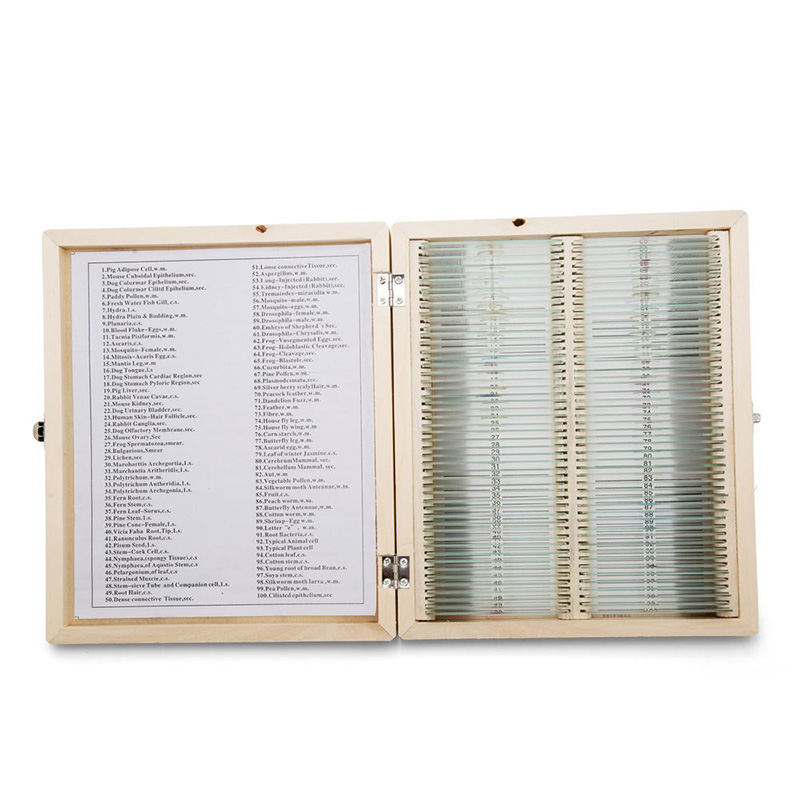 1.Pig Adipose Cell,w.m.
2.Mouse Cuboidal Epithelium,sec.
3.Dog Colurmar Epihelium,sec.
4.Dog Colurmar Ciltd Epihelium,sec.
5.Paddy Pollen,w.m.
6.Fresh Water Fish Gill, c.s.
7.Hydra,l.s.
8.Hydra Plain & Budding,w.m.
9.Planaria,c.s.
10.Blood Fluke-Eggs,w.m.
11.Taenia Pisiformis,w.m.
12.Ascaris,c.s.
13.Mosquito-Female,w.m.
14.Mitosis-Acaris Egg,c.s.
15.Mantis Leg,w.m
16.Dog Tongue,l.s
17.Dog Stomach Cardiac Region,sec
18.Dog Stomach Pyloric Region,sec
19.Pig Liver,sec.
20.Rabbit Venae Cavae,c.s.
21.Mouse Kidney,sec.
22.Dog Urinary Bladder,sec.
23.Human Skin-Hair Follicle,sec.
24.Rabbit Ganglia,sec.
25.Dog Olfactory Membrane,sec.
26.Mouse Ovary,Sec
27.Frog Spermatozoa,smear.
28.Bulgarious,Smear
29.Lichen,sec
30.Marohattis Archegortia,l.s.
31.Marchantia Aritheridis,l.s.
32.Polytrichum,w.m.
33.Polytrichum Antheridia,l.s.
34.Polytrichum Archegonia,l.s.
35.Fern Root,c.s.
36.Fern Stem,c.s.
37.Fern Leaf-Sorus,c.s.
38.Pine Stem,l.s.
39.Pine Cone-Female,l.s.
40.Vicia Faba Root,Tip,l.s.
41.Ranunculus Root,c.s.
42.Pisum Seed,l.s.
43.Stem-Cork Cell,c.s.
44.Nymphaea,(spongy Tissue),c.s
45.Nymphaea,of Aqustic Stem,c.s
46.Pelargonium,of leaf,c.s
47.Strained Muscie,c.s.
48.Stem-sieve Tube and Companion cell,l.s.
49.Root Hair,c.s.
50.Dense connective Tissue,sec.
51.Loose connective Tissue,sec.
52.Aspergillus,w.m.
53.Lung-Injected (Rabbit),sec.
54.Kidney-Injected (Rabbit),sec.
55.Tremaiodes-miracidia w.m.
56.Mosquito-male,w.m.
57.Mosquito-eggs,w.m.
58.Drosophila-female,w.m.
59.Drosophila-male,w.m.
60.Embryo of Shepherd's Sec.
61.Drosophila-Chrysalis,w.m.
62.Frog-Vnsegmented Eggs,sec.
63.Frog-Holoblastic Cleavage,sec.
64.Frog-Cleavage,sec.
65.Frog-Blastole,sec.
66.Cucurbita,w.m.
67.Pine Pollen,w.m.
68.Plasmodesmata,sec.
69.Silver berry scalyHair,w.m.
70.Peacock feather,w.m.
71.Dandelion Fuzz,w.m.
72.Feather,w.m.
73.Fibre,w.m.
74.House fly leg,w.m.
75.House fly wing,w.m
76.Corn starch,w.m.
77.Butterfly leg,w.m.
78.Ascarid egg,w.m.
79.Leaf of winter Jasmine,c.s.
80.CerebrumMammal, sec.
81.Cerebellum Mammal, sec.
82.Ant,w.m
83.Vegetable Pollen,w.m.
84.Silkworm moth Antennae,w.m.
85.Fruit,c.s.
86.Peach worm,w.m.
87.Butterfly Antennae,w.m.
88.Cotton worm,w.m.
89.Shrimp-Egg w.m.
90.Letter "e", w.m.
91.Root Bacteria,c.s.
92.Typical Animal cell
93.Typical Plant cell
94.Cotton leaf,c.s.
95.Cotton stem,c.s.
96.Young root of broad Bean,c.s.
97.Soya stem,c.s.
98.Silkworm moth larva ,w.m.
99.Pea Pollen,w.m.
100.Cilisted epithelium,sec